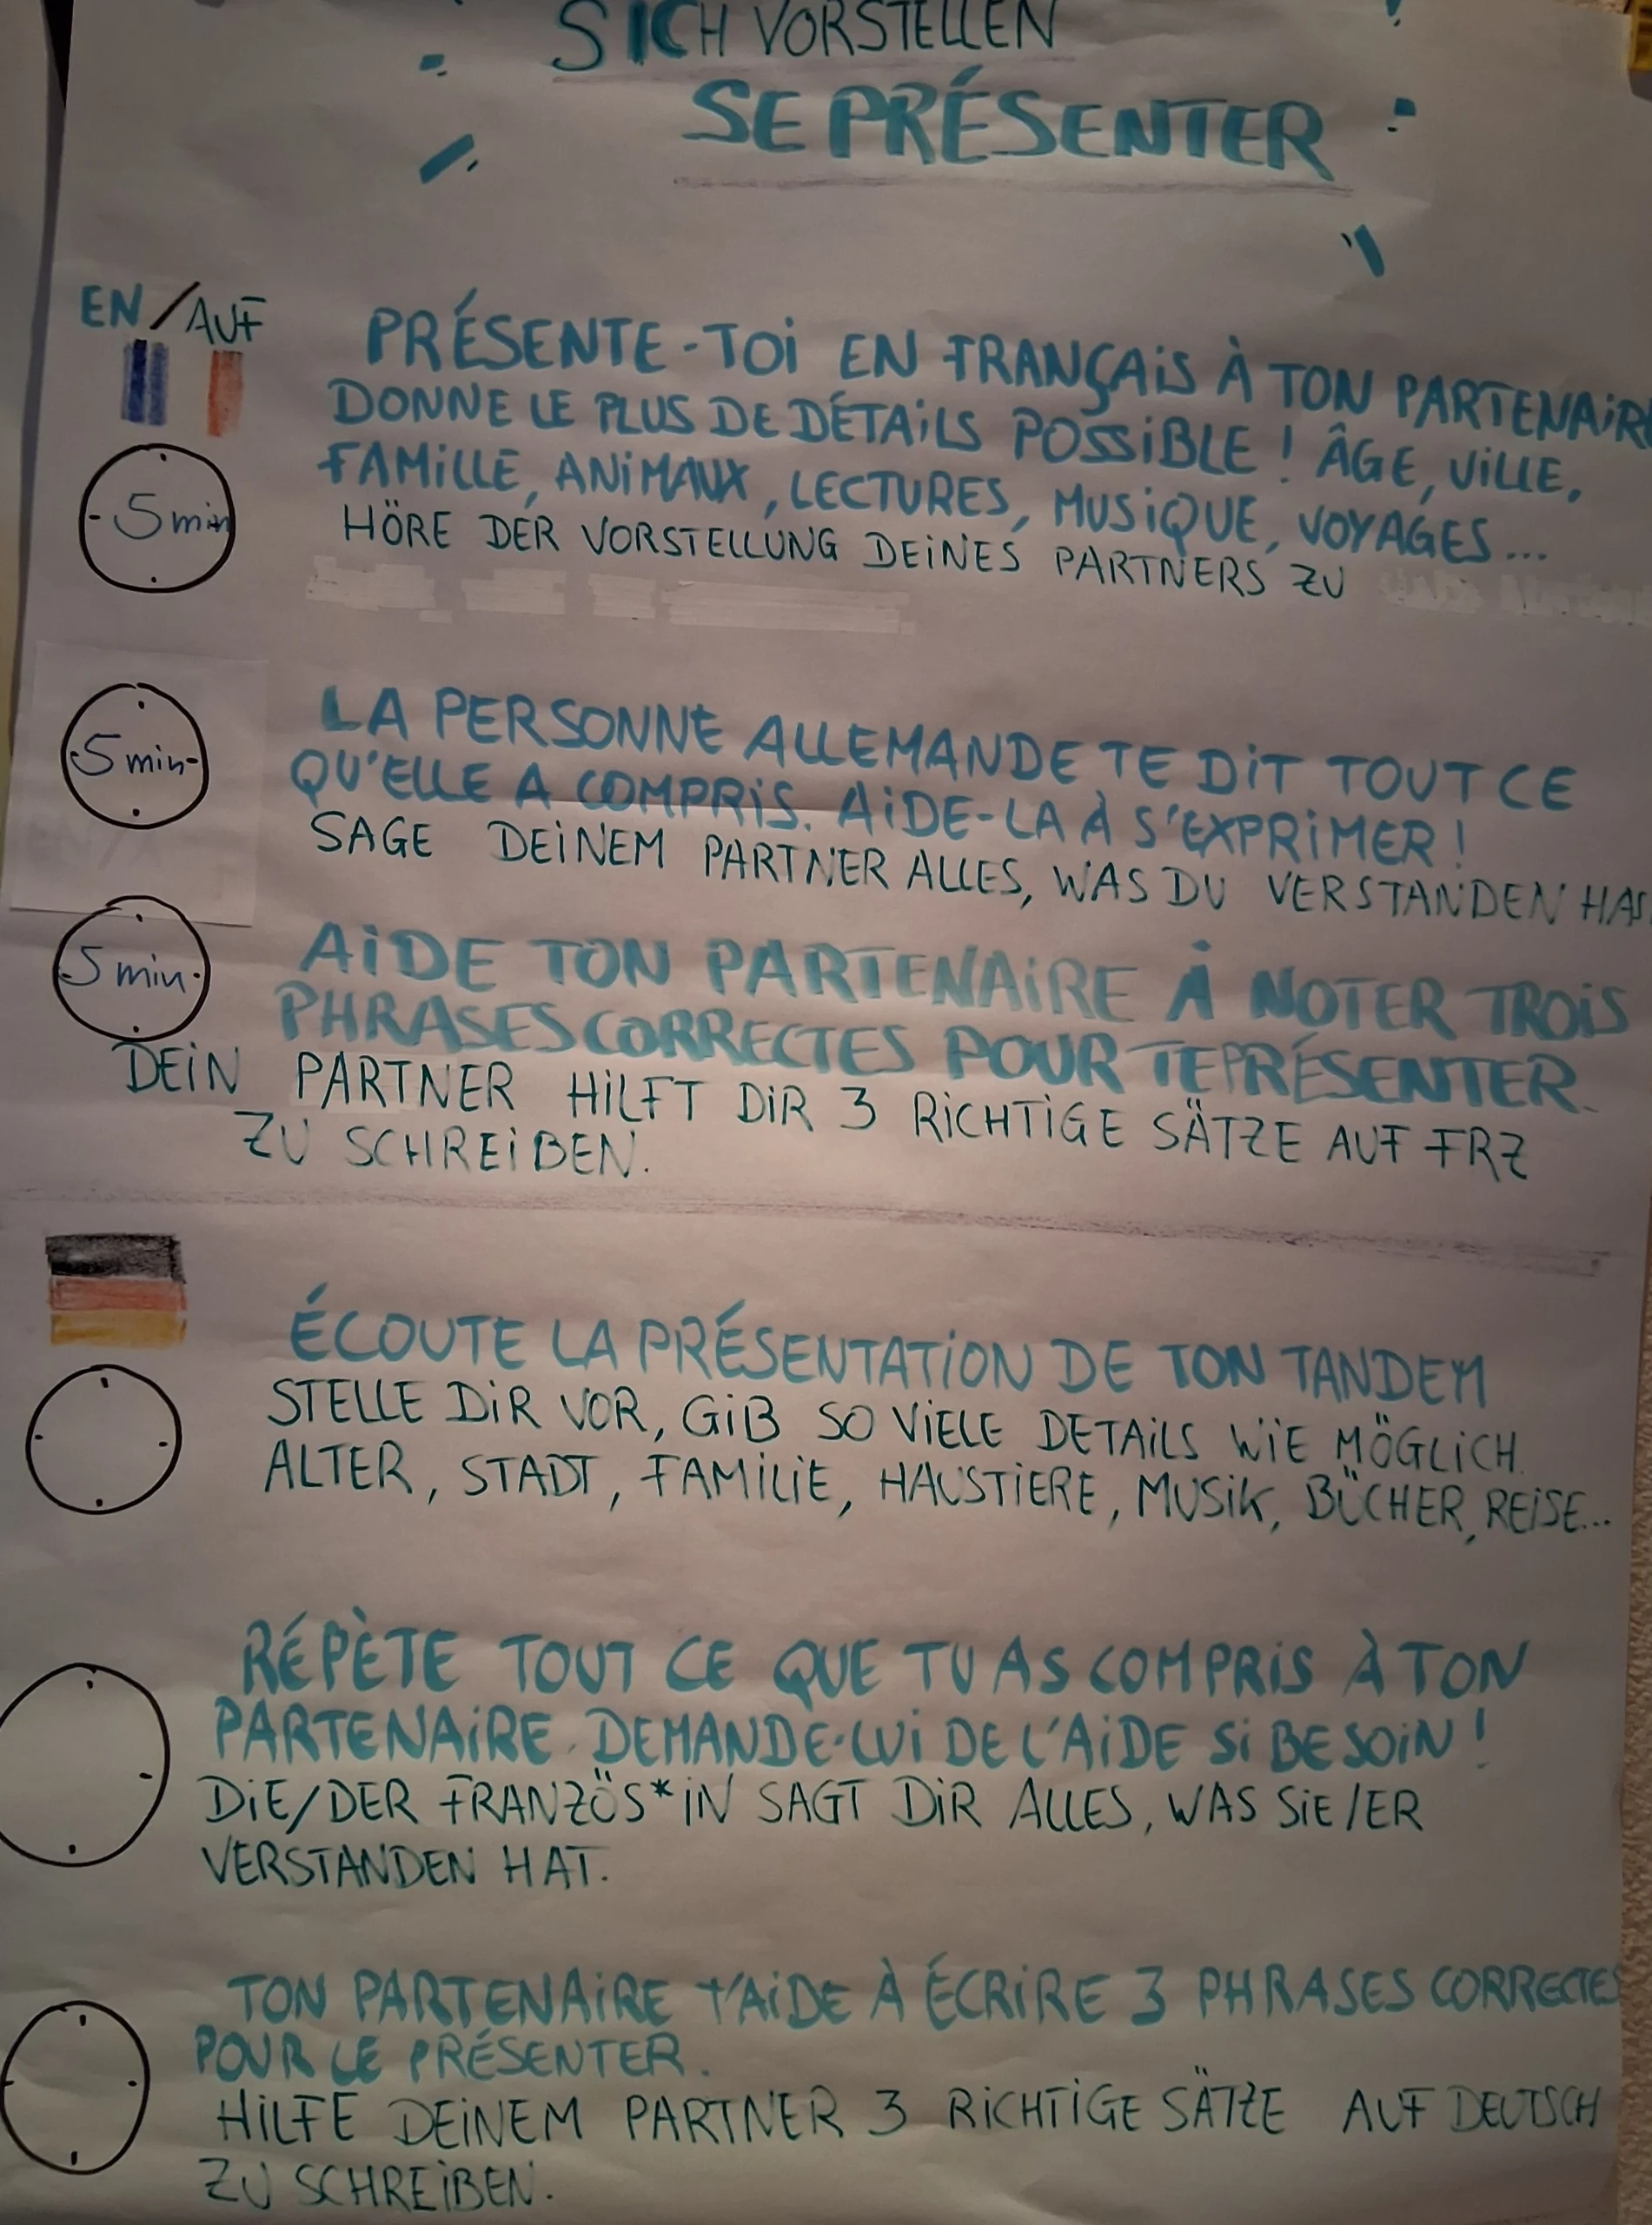 SICH VORSTELLEN
SE PRÉSENTER
EN/AUF
PRÉSENTE-TOI EN FRANÇAIS À TON PARTENAIR
DONNE LE PLUS DE DÉTAILS POSSIBLE ! ÂGE, VILLE,
FAMILLE, ANIMAUX, LECTURES, MUSIQUE, VOYAGES...
5 min
HÖRE DER VORSTELLUNG DEINES PARTNERS ZU
5 min
LA PERSONNE ALLEMANDE TE DIT TOUT CE
QU'ELLE A COMPRIS. AIDE-LA À S'EXPRIMER !
SAGE DEINEM PARTNER ALLES, WAS DU VERSTANDEN HAS
5 min
AIDE TON PARTENAIRE À NOTER TROIS
PHRASES CORRECTES POUR TE PRÉSENTER.
DEIN PARTNER HILFT DIR 3 RICHTIGE SÄTZE AUF FRZ
ZU SCHREIBEN.
ÉCOUTE LA PRÉSENTATION DE TON TANDEM
STELLE DIR VOR, GIB SO VIELE DETAILS WIE MÖGLICH.
ALTER, STADT, FAMILIE, HAUSTIERE, MUSIK, BÜCHER, REISE...
RÉPÈTE TOUT CE QUE TU AS COMPRIS À TON
PARTENAIRE. DEMANDE-LUI DE L'AIDE SI BESOIN !
DIE/DER FRANZÖS*IN SAGT DIR ALLES, WAS SIE/ER
VERSTANDEN HAT.
TON PARTENAIRE T'AIDE À ÉCRIRE 3 PHRASES CORRECTES
POUR LE PRÉSENTER.
HILFE DEINEM PARTNER 3 RICHTIGE SÄTZE AUF DEUTSCH
ZU SCHREIBEN.